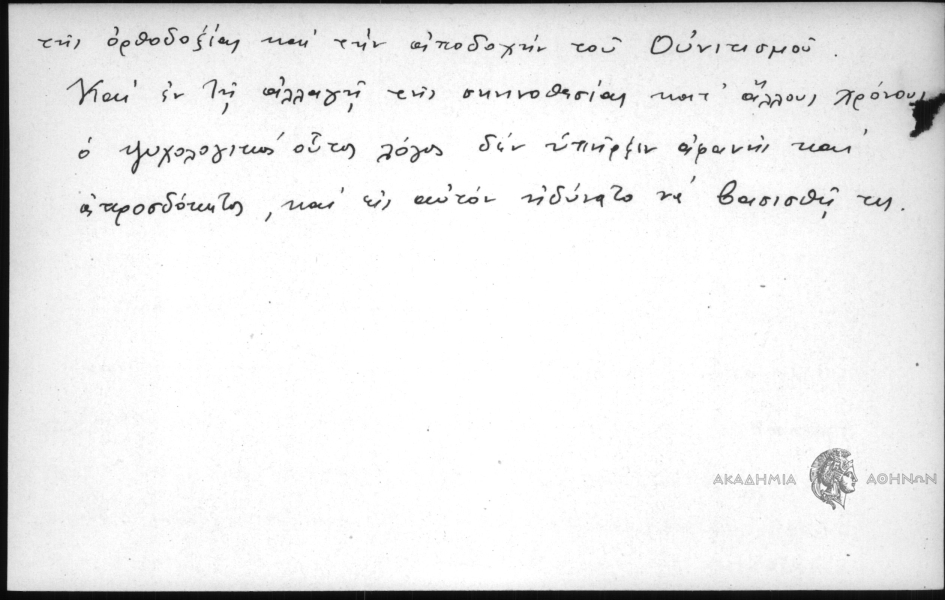 τῆς ὀρθοδοξίας καὶ τὴν ἀποδοχὴν τοῦ Οὐνιτισμοῦ.
Καὶ ἐν τῇ ἀλλαγῇ τῆς σκηνοθεσίας κατ' ἄλλους χρόνους
ὁ ψυχολογικὸς οὗτος λόγος δὲν ὑπῆρξεν ἀφανὴς καὶ
ἀπροσδόκητος, καὶ εἰς αὐτὸν ἠδύνατο νὰ βασισθῇ τις.
ΑΚΑΔΗΜΙΑ ΑΘΗΝΩΝ